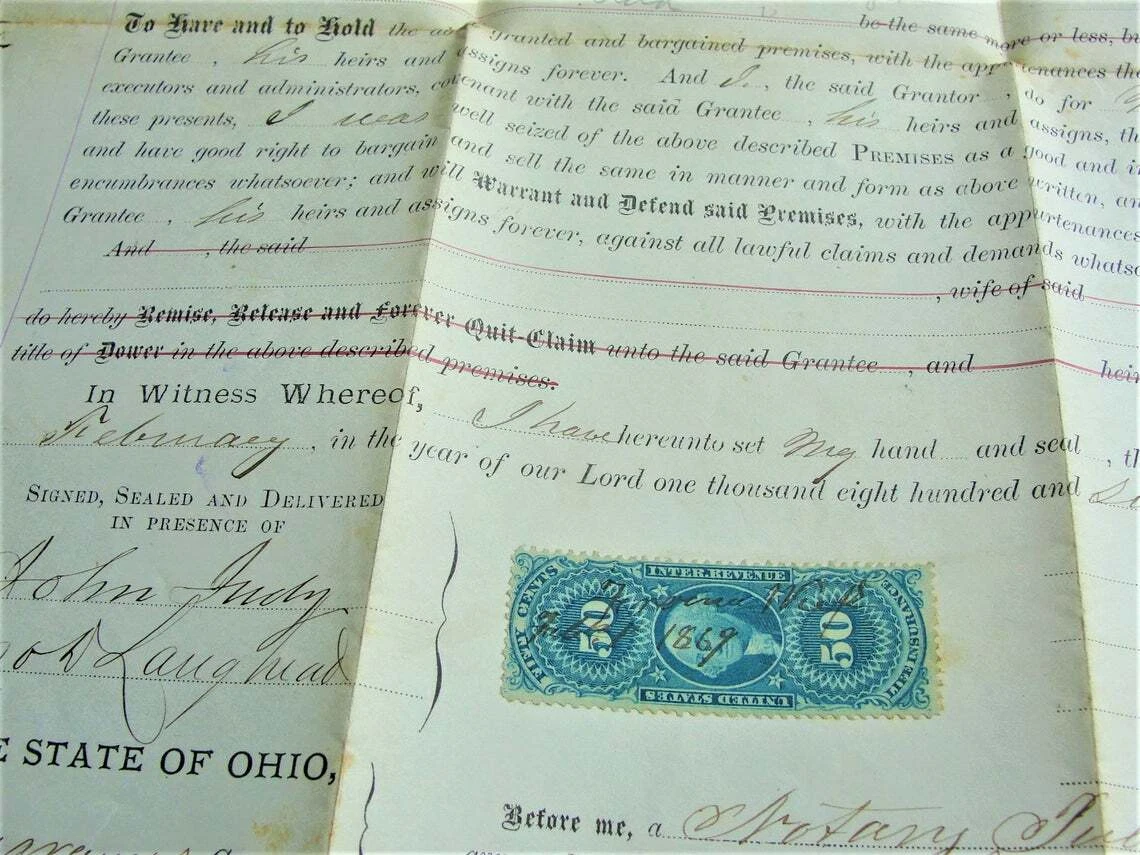 be the same more or less, bu
To Have and to Hold the ab granted and bargained premises, with the appurtenances the
Grantee, his heirs and assigns forever. And I, the said Grantor, do for
executors and administrators, covenant with the said Grantee, his heirs and assigns, th
these presents, I was well seized of the above described PREMISES as a good and in
and have good right to bargain and sell the same in manner and form as above written, an
encumbrances whatsoever; and will Warrant and Defend said Premises, with the appurtenances
Grantee, his heirs and assigns forever, against all lawful claims and demands whatso
And , the said , wife of said
do hereby Remise, Release and Forever Quit-Claim unto the said Grantee, and heir
title of Dower in the above described premises.
In Witness Whereof, I have hereunto set my hand and seal, th
February, in the year of our Lord one thousand eight hundred and
SIGNED, SEALED AND DELIVERED
IN PRESENCE OF
John Judy
Laughead
INTER. REVENUE
FIFTY CENTS
50
50
LIFE INSURANCE
UNITED STATES
1869
E STATE OF OHIO,
Before me, a Notary